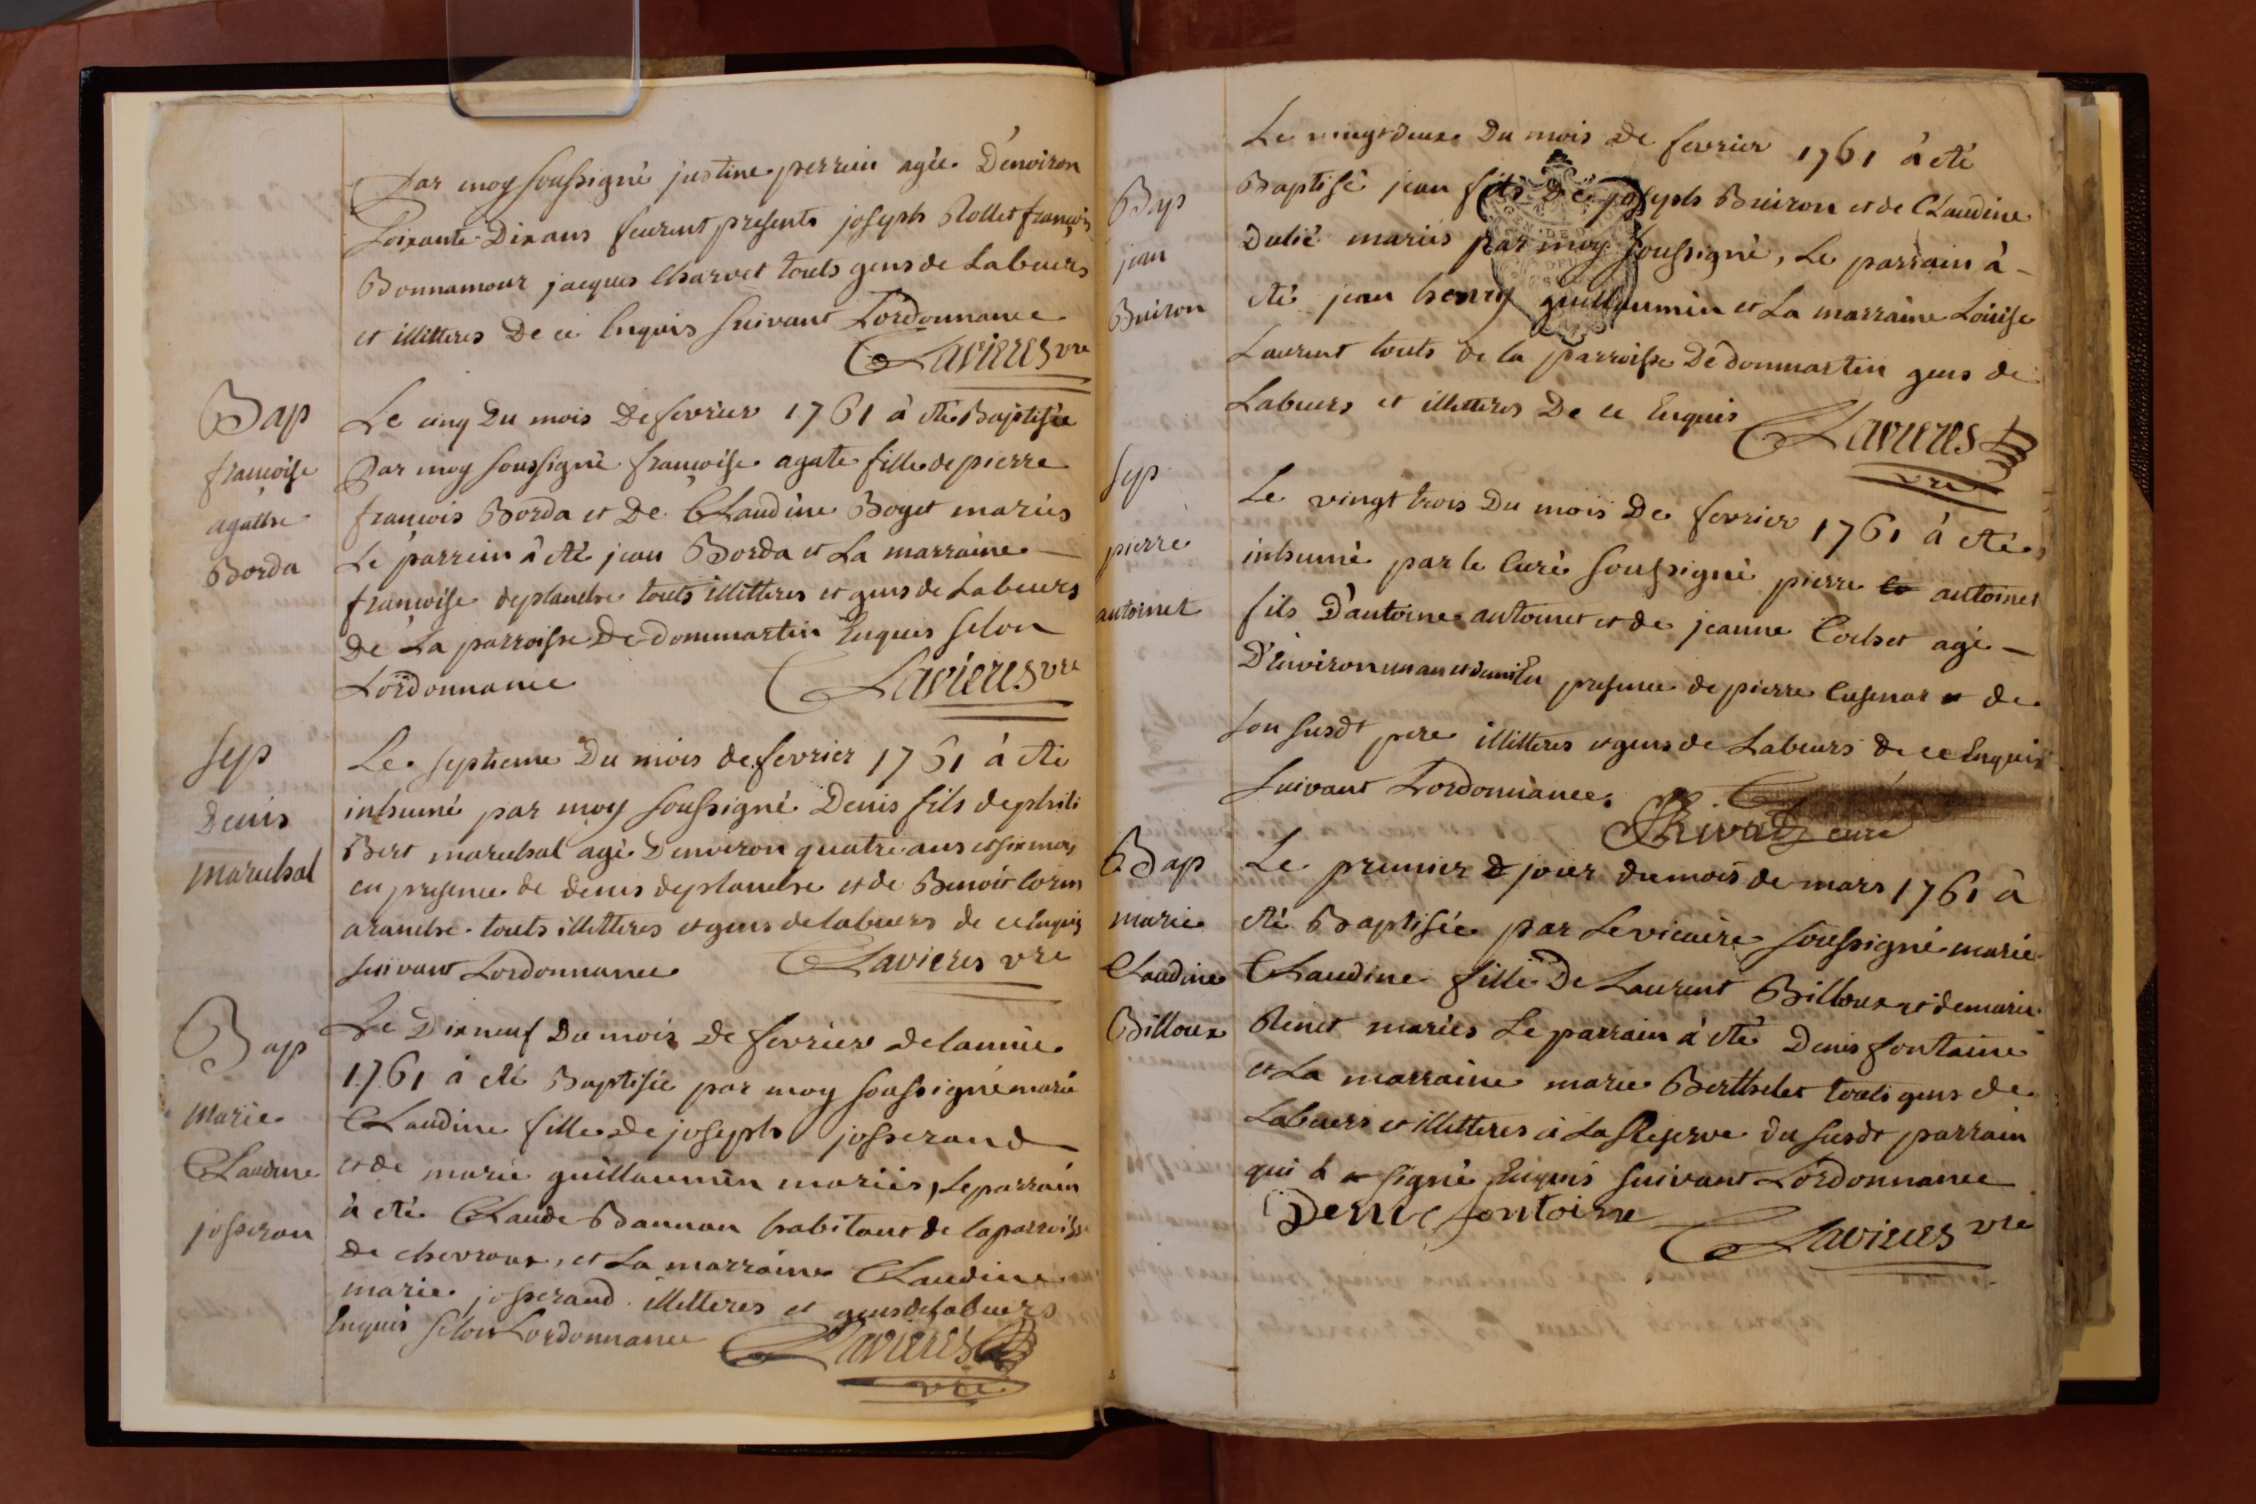 Par moy soussigné justine perrein agée D'environ
Soixante Dix ans feurent presents joseph Rollet françois
Bonnamour jacques Charvet touts gens de Labeurs
et illitteres De ce Enquis suivant Lordonnance
Lavieres vre
Bap
françoise
agathe
Borda
Le cinq Du mois De fevrier 1761 à eté Baptisée
Par moy soussigné françoise agate fille de pierre
françois Borda et De Claudine Boget mariés
Le parrein à eté jean Borda et La marraine
françoise deplanche touts illitteres et gens de Labeurs
De La parroisse De dommartin Enquis selon
Lordonnance
Lavieres vre
Sep
Denis
Marechal
Le septieme Du mois de fevrier 1761 à eté
inhumé par moy soussigné Denis fils de phili
Bert marechal agé Denviron quatre ans et six mois
en presence de denis deplanche et de Benoit
touts illitteres et gens de labeurs de ce Enquis
suivant Lordonnance
Lavieres vre
Bap
Marie
Claudine
josseran
Le Dix neuf Du mois De fevrier de lannée
1761 à eté Baptisée par moy soussigné marie
Claudine fille de joseph josserand
et de marie guillaumin mariés, Le parrain
à eté Claude Bannan habitant de la parroisse
De chevroux, et La marraine Claudine
marie josserand illitteres et gens de labeurs
Enquis selon Lordonnance
Lavieres
vre
Bap
jean
Buiron
Le vingt deux Du mois De fevrier 1761 à eté
Baptisé jean fils De joseph Buiron et de Claudine
Dubié mariés par moy soussigné, Le parrain à
eté jean henry guillaumin et La marraine Loüise
Laurent touts de la parroisse De dommartin gens de
Labeurs et illitteres De ce Enquis
Lavieres
vre
Sep
pierre
antoinet
Le vingt trois Du mois De fevrier 1761 à eté
inhumé par le Curé soussigné pierre antoinet
fils D'antoine antoinet et de jeanne Cochet agé
D'Environ un an et demi En presence de pierre et de
son susdt pere illitteres et gens de Labeurs de ce Enquis
suivant Lordonnance.
curé
Bap
marie
Claudine
Billoux
Le premier jour du mois de mars 1761 à
eté Baptisée par Le vicaire soussigné marie
Claudine fille De Laurent Billoux et de marie
Renet mariés Le parrain à eté Denis fontaine
et La marraine marie Berthelet touts gens de
Labeurs et illitteres à La Reserve du susdt parrain
qui à signé Enquis suivant Lordonnance
Denis fontaine
Lavieres vre